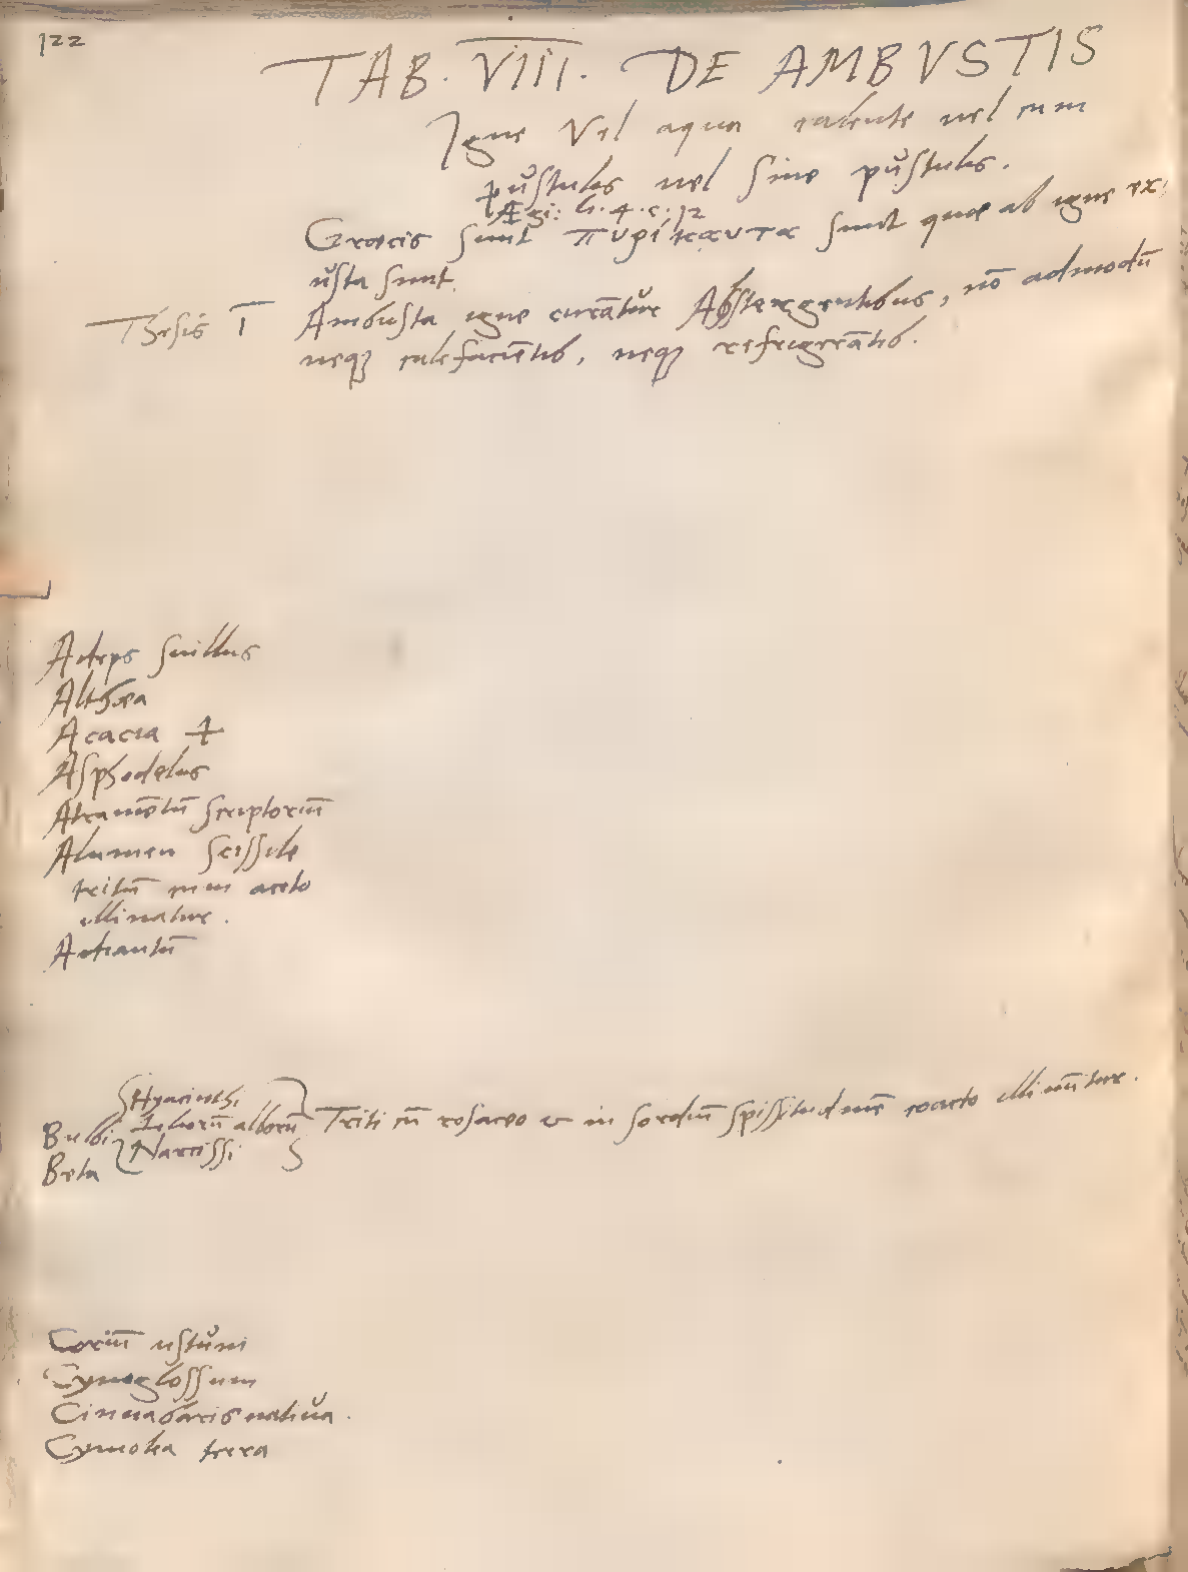 122
TAB. VIII. DE AMBVSTIS
Igne Vel aqua calente uel cum
pŭstulis uel sine pŭstulis.
Ægi: li. 4. c: 12
Græcis sunt πυρίκαυτα sunt quæ ab igne ex;
ŭsta sunt.
Thesis I Ambusta igne curātŭr Abstergentibus, nō admodū
neqȝ calefaciētib, neqȝ refrigerātib.
Adeps suillus
Althæa
Acacia
Asphodelus
Atramētū scriptoriū
Alumen scissile
tritū cum aceto
illinatur.
Adiantū
Bulbi
Hyacinthi
Liliorū alborū
Narcissi
Triti cū rosaceo & in sordiū spissitudinē coacto illinūtur.
Beta
Coriū ustŭm
Cynoglossum
Cinnabaris natiŭa.
Cymolia terra